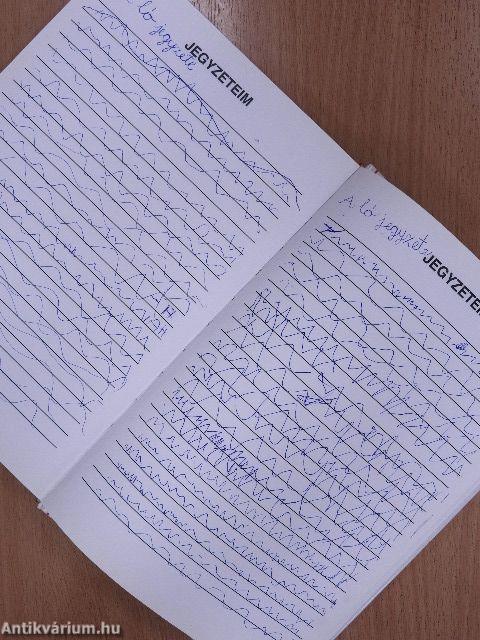 A ló jegyzete
JEGYZETEIM
A ló jegyzete
JEGYZETEIM
Antikvárium.hu